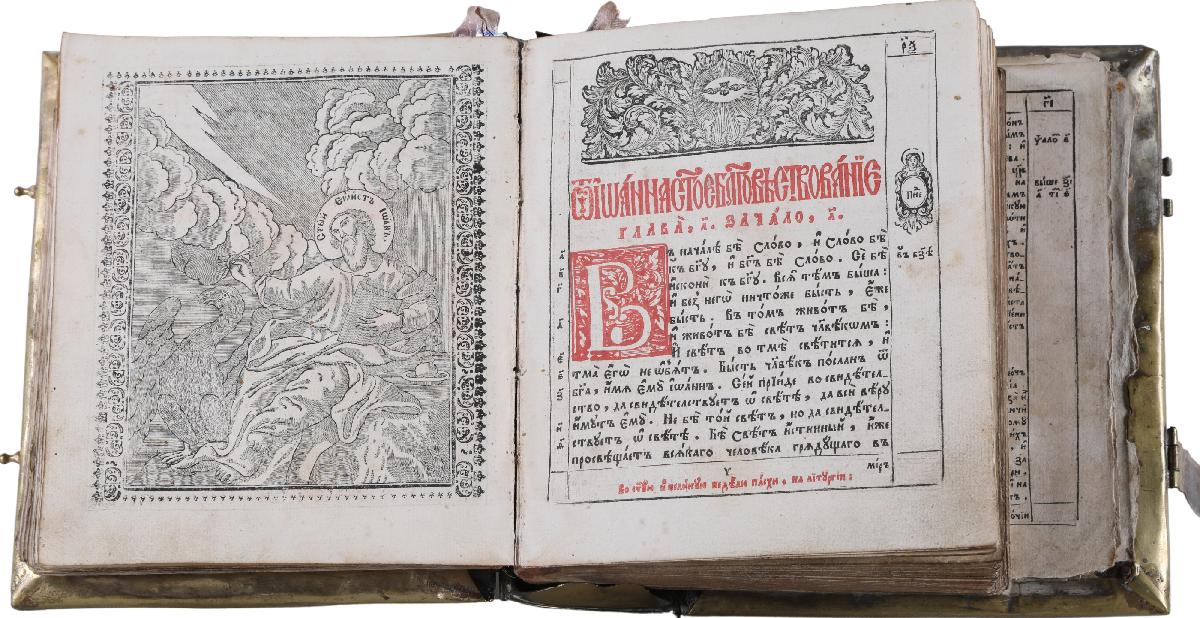 СТЫЙ ЕѴЛИСТЪ ІѠАНЪ
Ѿ ІѠА́ННА СТО́Е БЛГОВѢСТВОВА́НІЕ
ГЛАВА̀, а҃. ЗАЧА́ЛО, а҃.
Въ нача́лѣ бѣ̀ сло́во, и҆ сло́во бѣ̀
къ бг҃у, и҆ бг҃ъ бѣ̀ сло́во. Се́й бѣ̀
и҆сконѝ къ бг҃у. Всѧ̑ тѣ́мъ бы́ша:
и҆ без̾ негѡ̀ ничто́же бы́сть, є҆́же
бы́сть. Въ то́мъ живо́тъ бѣ̀,
и҆ живо́тъ бѣ̀ свѣ́тъ человѣ́кѡмъ:
и҆ свѣ́тъ во тмѣ̀ свѣ́тится, и҆
тма̀ є҆гѡ̀ не ѡ҆б̾ѧ́тъ. Бы́сть человѣ́къ по́сланъ ѿ
бг҃а, и҆́мѧ є҆мꙋ̀ і҆ѡа́ннъ. Се́й прїи́де во свидѣ́тел-
ство, да свидѣ́телствуетъ ѡ҆ свѣ́тѣ, да всѝ вѣ́рꙋ
и҆́мꙋтъ є҆мꙋ̀. Не бѣ̀ то́й свѣ́тъ, но да свидѣ́тел-
ствꙋетъ ѡ҆ свѣ́тѣ. Бѣ̀ свѣ́тъ и҆́стинный, и҆́же
просвѣща́етъ всѧ́каго человѣ́ка грѧдꙋ́щаго въ
мі́ръ
Во ст҃ꙋю и҆ вели́кꙋю недѣ́лю па́схи, на лїтꙋргі́и: